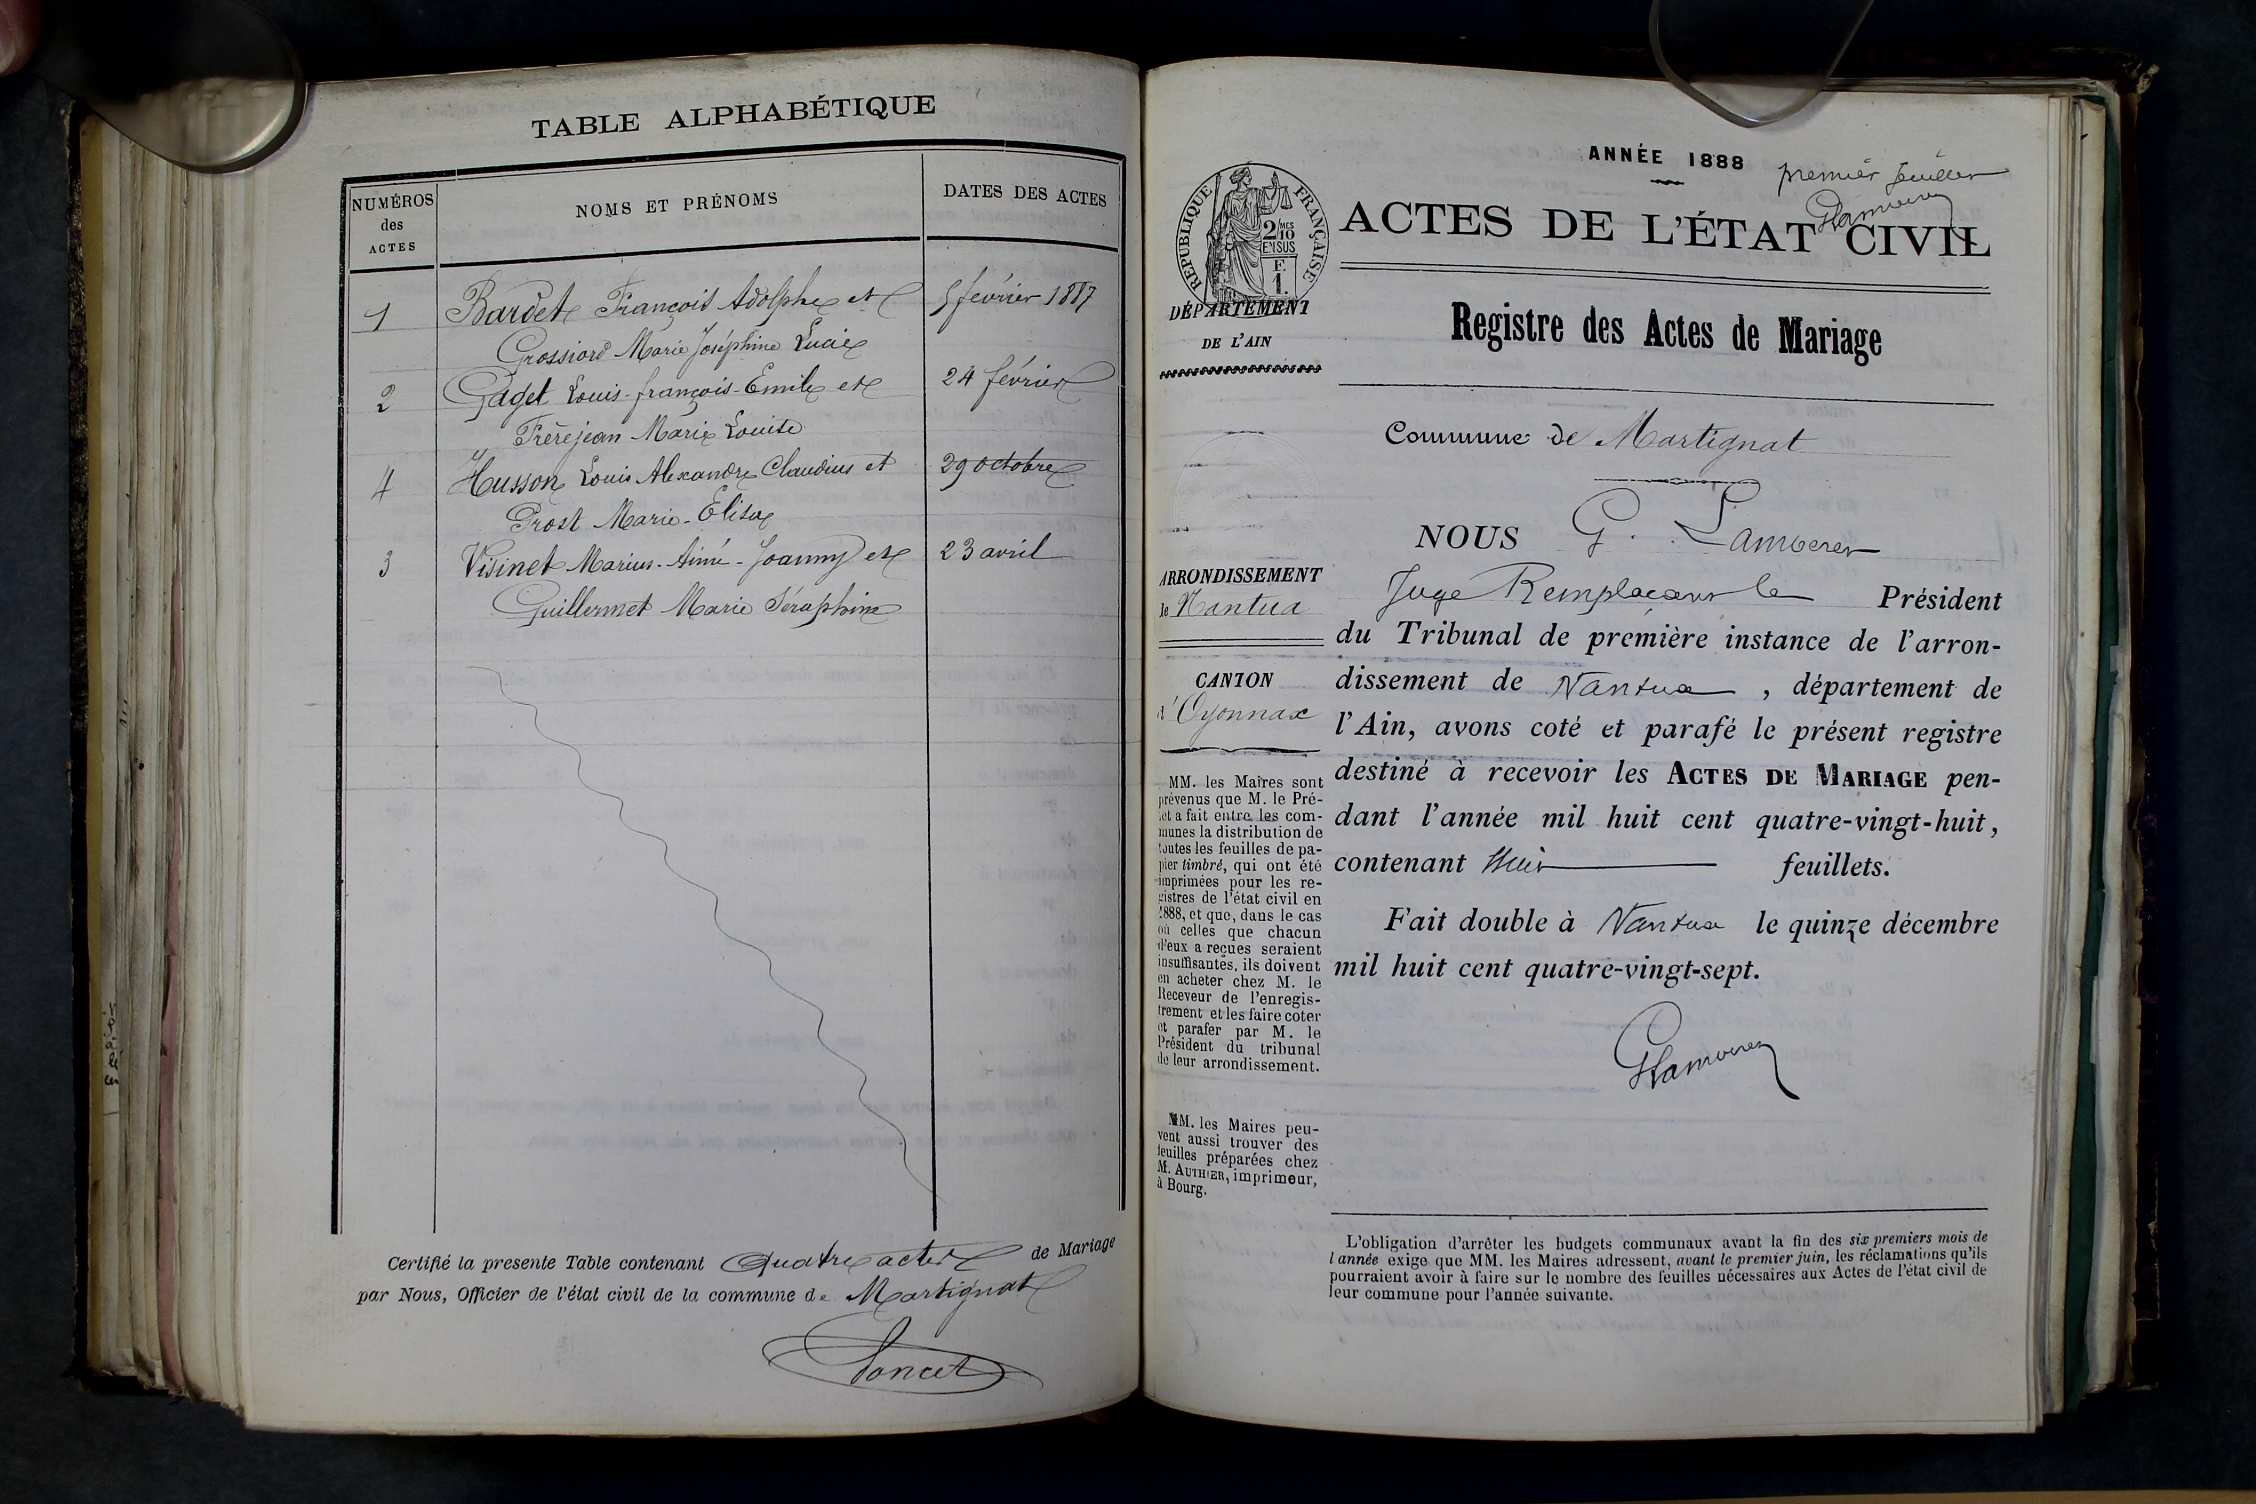 TABLE ALPHABÉTIQUE
NUMÉROS des ACTES
NOMS ET PRÉNOMS
DATES DES ACTES
1 Bardet François Adolphe et 5 février 1887
Grossiord Marie Joséphine Lucie
2 Gaget Louis-françois-Emile et 24 février
Frèrejean Marie Louise
4 Husson Louis Alexandre Claudius et 29 octobre
Prost Marie-Elisa
3 Visinet Marius-Aimé-Joanny et 23 avril
Guillermet Marie Séraphine
Certifié la presente Table contenant Quatre actes de Mariage
par Nous, Officier de l'état civil de la commune de Martignat
Poncet
ANNÉE 1888
premier feuillet
ACTES DE L'ÉTAT CIVIL
RÉPUBLIQUE FRANÇAISE
2/10 MES
EN SUS
F.
1.
DÉPARTEMENT
DE L'AIN
Registre des Actes de Mariage
Commune de Martignat
ARRONDISSEMENT
de Nantua
CANTON
d'Oyonnax
MM. les Maires sont
prévenus que M. le Pré-
fet a fait entre les com-
munes la distribution de
toutes les feuilles de pa-
pier timbré, qui ont été
imprimées pour les re-
gistres de l'état civil en
1888, et que, dans le cas
où celles que chacun
d'eux a reçues seraient
insuffisantes, ils doivent
en acheter chez M. le
Receveur de l'enregis-
trement et les faire coter
et parafer par M. le
Président du tribunal
de leur arrondissement.
MM. les Maires peu-
vent aussi trouver des
feuilles préparées chez
M. AUTHIER, imprimeur,
à Bourg.
NOUS G.
Juge Remplaçant le Président
du Tribunal de première instance de l'arron-
dissement de Nantua, département de
l'Ain, avons coté et parafé le présent registre
destiné à recevoir les ACTES DE MARIAGE pen-
dant l'année mil huit cent quatre-vingt-huit,
contenant Huit feuillets.
Fait double à Nantua le quinze décembre
mil huit cent quatre-vingt-sept.
L'obligation d'arrêter les budgets communaux avant la fin des six premiers mois de
l'année exige que MM. les Maires adressent, avant le premier juin, les réclamations qu'ils
pourraient avoir à faire sur le nombre des feuilles nécessaires aux Actes de l'état civil de
leur commune pour l'année suivante.